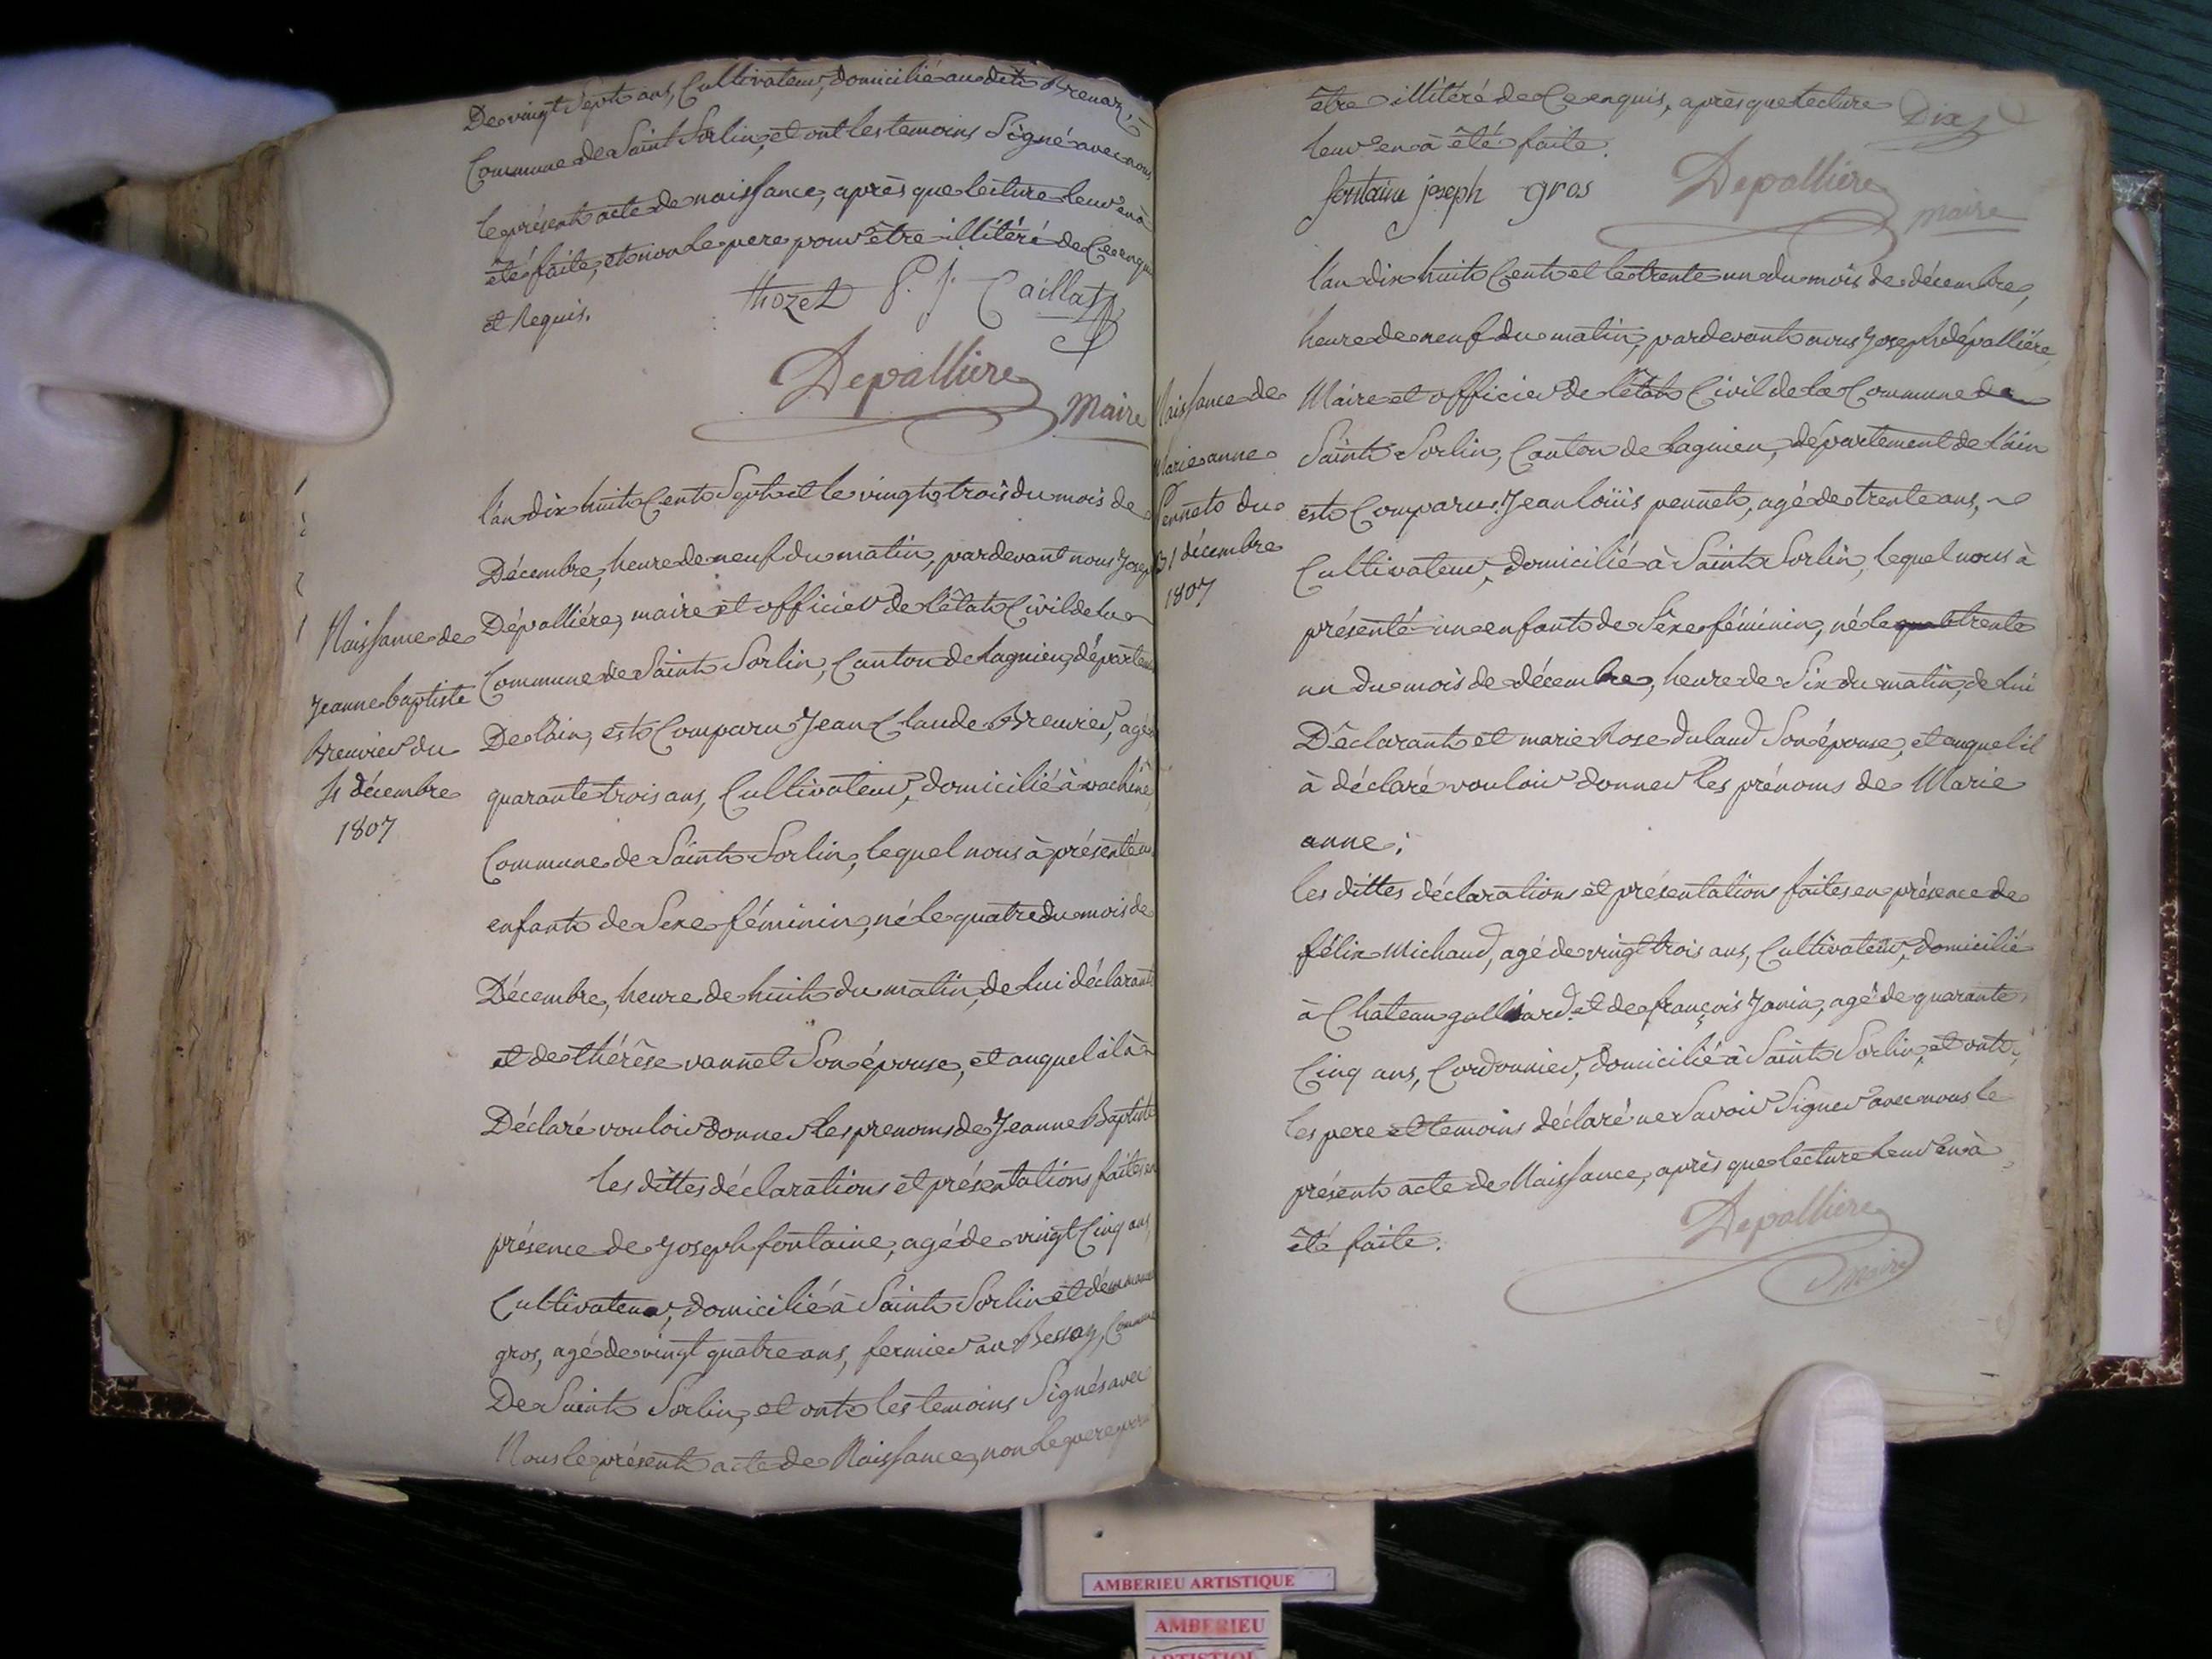 De vingt sept ans, Cultivateur, domicilié au dit Brenaz,
Commune de Saint Sorlin, et ont les temoins Signé avec nous
le présent acte de naissance, après que lecture leur en à
été faite, et non le pere pour être illitéré de Ce enquis
et Requis.
thozet P. J. Caillat
Depalliere
Maire
l'an dix huit Cent Sept et le vingt trois du mois de
Décembre, heure de neuf du matin, pardevant nous Joseph
Dépalliére, maire et officier de l'état Civil de la
Commune de Saint Sorlin, Canton de Lagnieu, départem
De l'ain, est Comparu Jean Claude Breuvier, agé
quarante trois ans, Cultivateur, domicilié à
Commune de Saint Sorlin, lequel nous à présenté un
enfant de Sexe féminin, né le quatre du mois de
Décembre, heure de huit du matin, de lui déclarant
et de thérêse vannet Son épouse, et auquel il à
Déclaré vouloir donner les prenoms de Jeanne Baptiste
les dittes déclarations et présentations faites en
présence de Joseph fontaine, agé de vingt Cinq ans,
Cultivateur, domicilié à Saint Sorlin et de
gros, agé de vingt quatre ans, fermier au Bessey, Commune
De Saint Sorlin, et ont les temoins Signés avec
Nous le présent acte de Naissance, non le pere pour
Naissance de
Jeanne baptiste
Breuvier du
4 décembre
1807
être illitéré de Ce enquis, après que lecture
leur en à été faite.
Dix
fontaine joseph gros Depalliere
maire
l'an dix huit Cent et le trente un du mois de décembre,
heure de neuf du matin, pardevant nous Joseph dépalliére,
Maire et officier de l'état Civil de la Commune de
Saint Sorlin, Canton de Lagnieu, département de l'ain
est Comparu Jean loüis pennet, agé de trente ans,
Cultivateur, domicilié à Saint Sorlin, lequel nous à
présenté un enfant de Sexe féminin, né le trente
un du mois de décembre, heure de Six du matin, de lui
Déclarant et marie Rose dulaud Son épouse, et auquel il
à déclaré vouloir donner les prénoms de Marie
anne;
les dittes déclarations et présentations faites en présence de
félix Michaud, agé de vingt trois ans, Cultivateur, domicilié
à Chateaugalliard et de françois Janin, agé de quarante
Cinq ans, Cordonnier, domicilié à Saint Sorlin, et ont
les pere et temoins déclaré ne Savoir Signer avec nous le
présent acte de Naissance, après que lecture leur en à
été faite.
Depalliere
maire
Naissance de
Marie anne
Pennet du
31 décembre
1807
AMBERIEU ARTISTIQUE
AMBERIEU
ARTISTIQUE